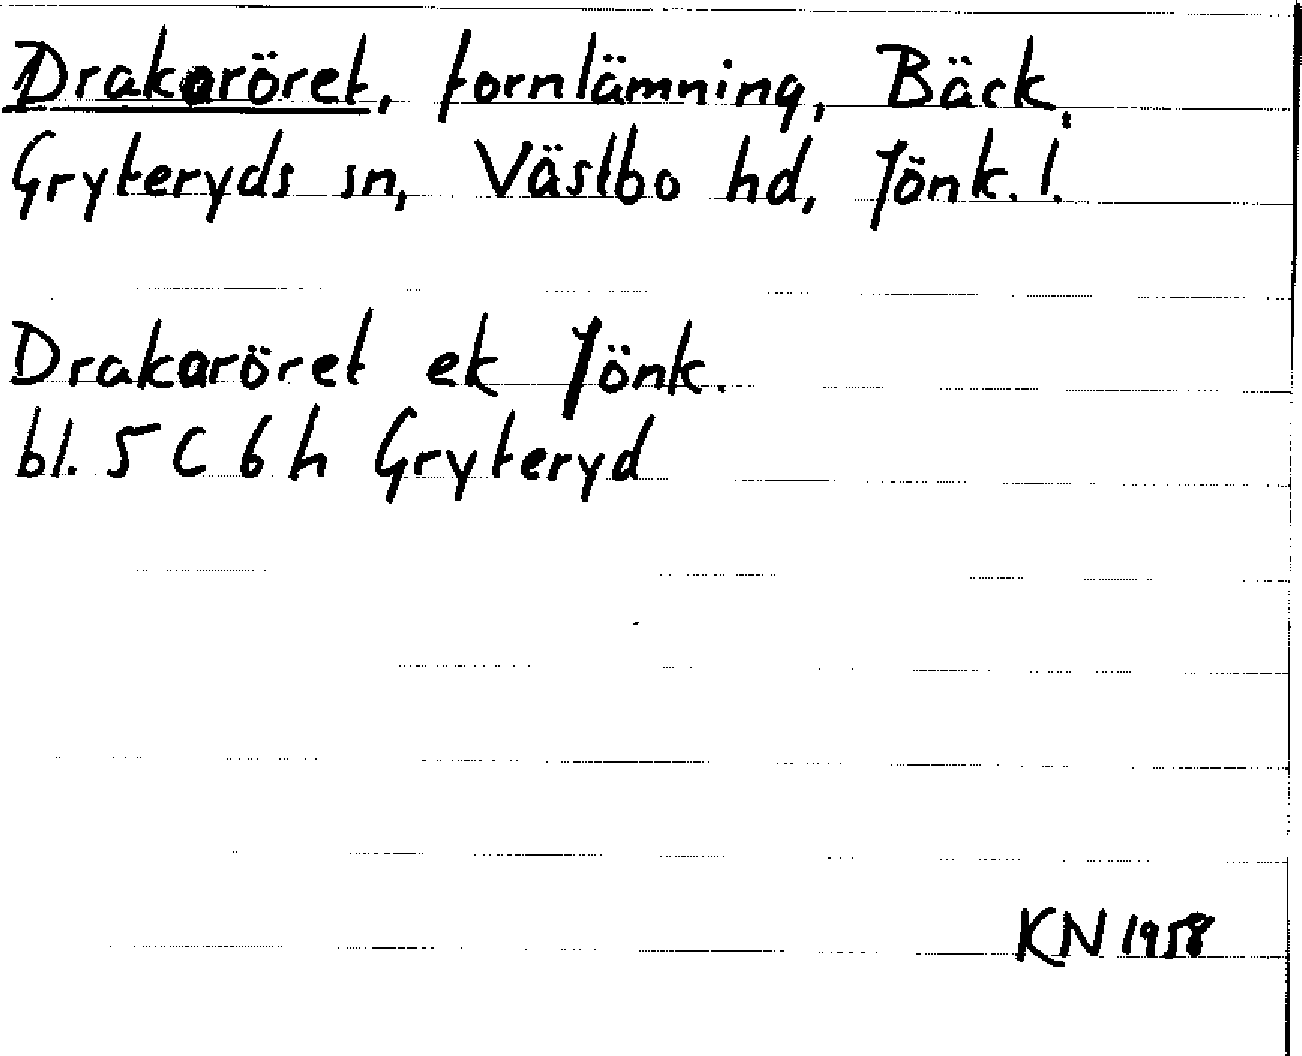 Drakaröret, fornlämning, Bäck,
Gryteryds sn, Västbo hd, Jönk. l.
Drakaröret ek Jönk.
bl. 5 C 6 h Gryteryd
KN 1958